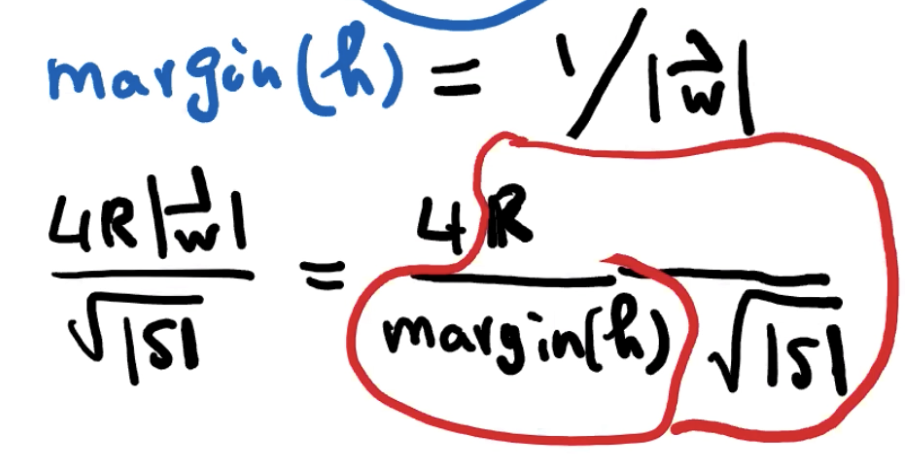 margin(h) = 1/|w⃗|
4R|w⃗| / √|S| = 4R / margin(h) √|S|